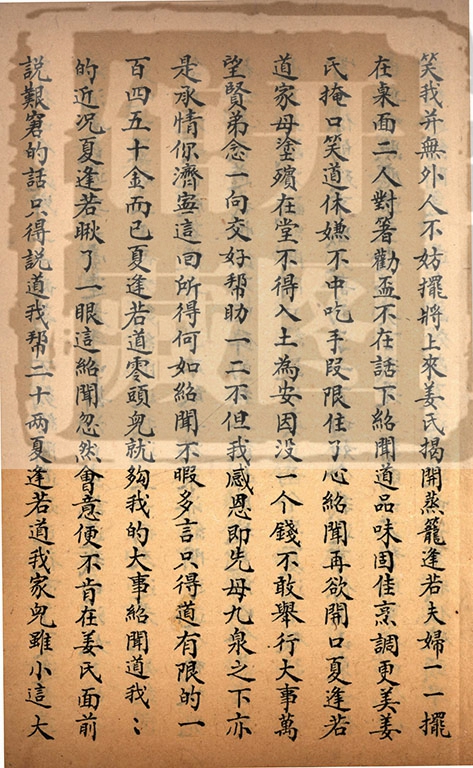 笑我并無外人不妨擺將上來姜氏揭開蒸籠逢若夫婦一一擺
在桌面二人對箸勸盃不在話下紹聞道品味固佳烹調更美姜
氏掩口笑道休嫌不中吃手段限住了心紹聞再欲開口夏逢若
道家母塗殯在堂不得入土為安因没一个錢不敢舉行大事萬
望賢弟念一向交好幇助一二不但我感恩即先母九泉之下亦
是承情你濟寍這回所得何如紹聞不暇多言只得道有限的一
百四五十金而已夏逢若道零頭兒就夠我的大事紹聞道我：
的近况夏逢若瞅了一眼這紹聞忽然會意便不肯在姜氏面前
説艱窘的話只得説道我幇二十两夏逢若道我家兒雖小這大